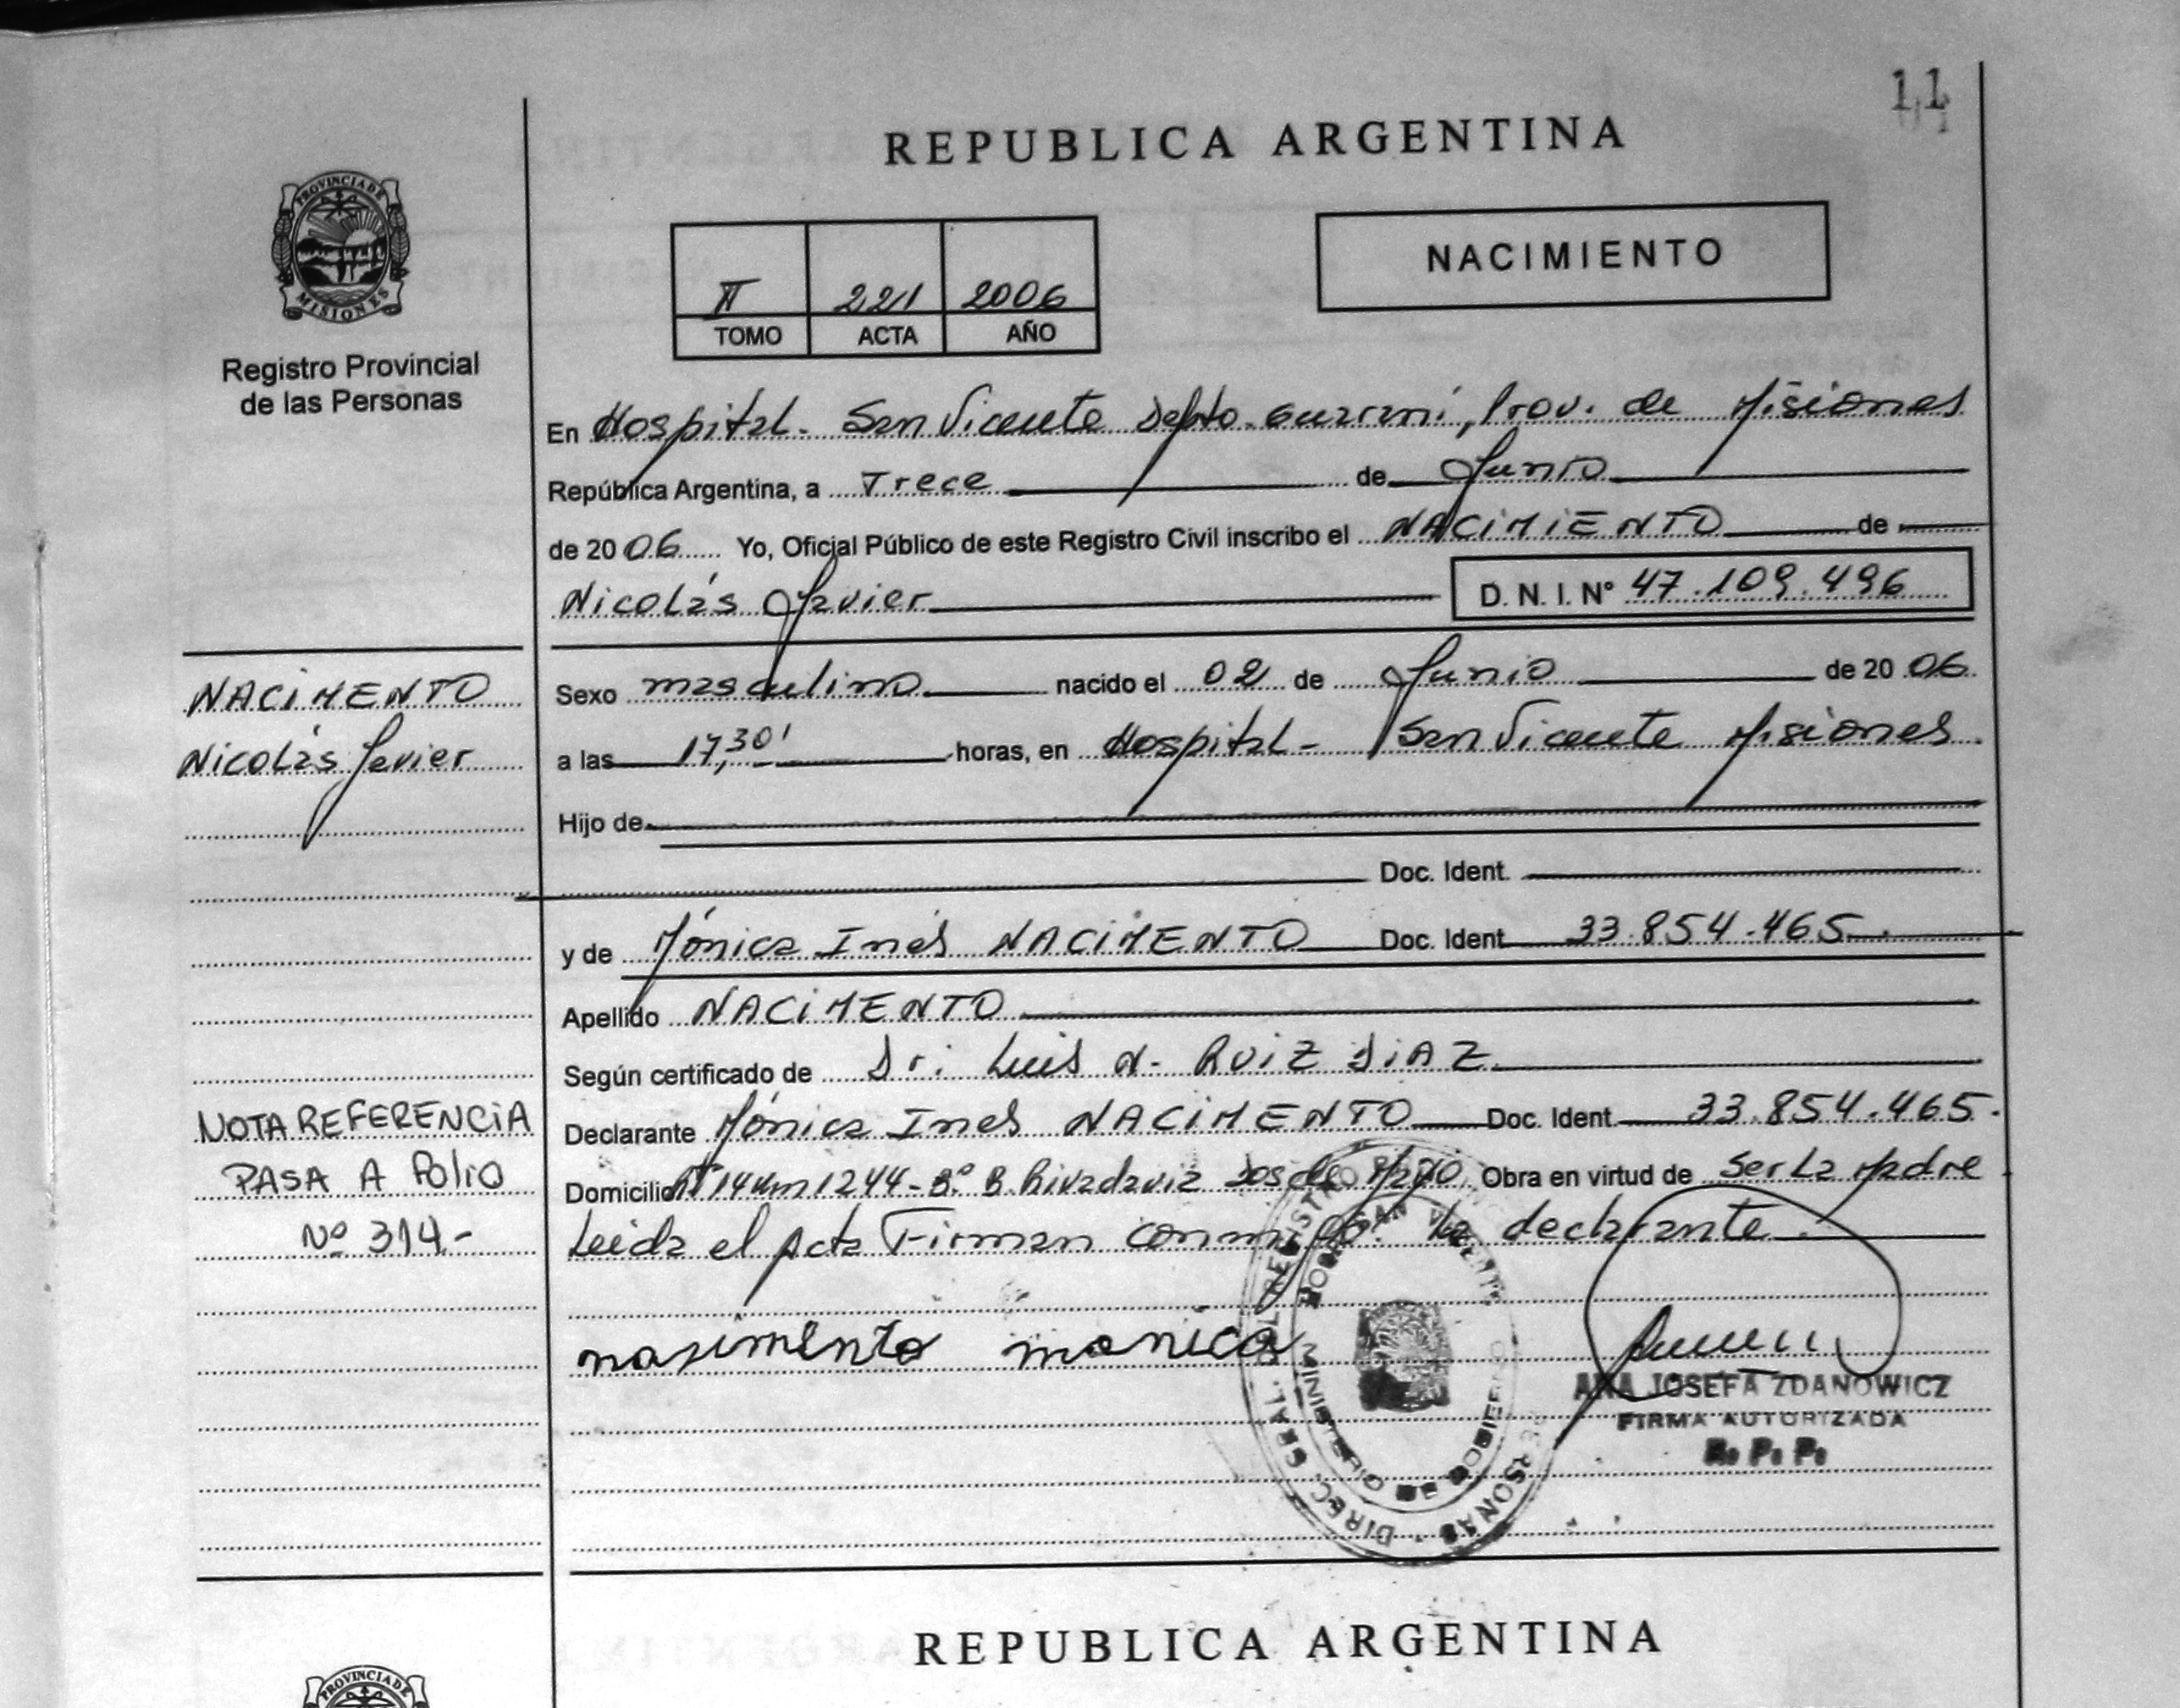 11
REPUBLICA ARGENTINA
PROVINCIA DE
MISIONES
Registro Provincial
de las Personas
II 221 2006
TOMO ACTA AÑO
NACIMIENTO
En Hospital - San Vicente Depto. Guaraní, Prov. de Misiones
República Argentina, a Trece de Junio
de 2006 Yo, Oficial Público de este Registro Civil inscribo el NACIMIENTO de
Nicolás Javier D. N. I. Nº 47.109.496
NACIMENTO
Nicolás Javier
Sexo masculino nacido el 02 de Junio de 2006
a las 17,30' horas, en Hospital - San Vicente Misiones
Hijo de
Doc. Ident.
y de Mónica Inés NACIMENTO Doc. Ident 33.854.465
Apellido NACIMENTO
Según certificado de Dr. Luis N. RUIZ DIAZ
Declarante Mónica Inés NACIMENTO Doc. Ident 33.854.465.
Domicilio 14 km 1244 - Bº B. Rivadavia Dos de Mayo Obra en virtud de ser la Madre
Leida el acta Firman conmigo: la declarante.
NOTA REFERENCIA
PASA A FOLIO
Nº 314.-
nasimento monica
DIREC. GRAL. DEL REGISTRO PERSONAS
SAN VICENTE
MINISTERIO DE GOBIERNO
ANA JOSEFA ZDANOWICZ
FIRMA AUTORIZADA
R. P. P.
REPUBLICA ARGENTINA
PROVINCIA DE